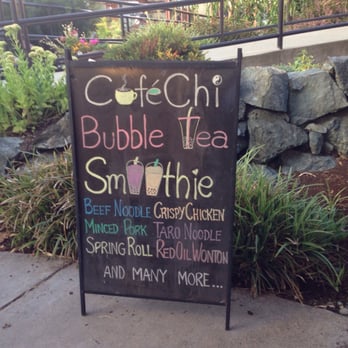 CaféChi
Bubble Tea
Smoothie
BEEF NOODLE CRISPY CHICKEN
MINCED PORK TARO NOODLE
SPRING ROLL RED OIL WONTON
AND MANY MORE...